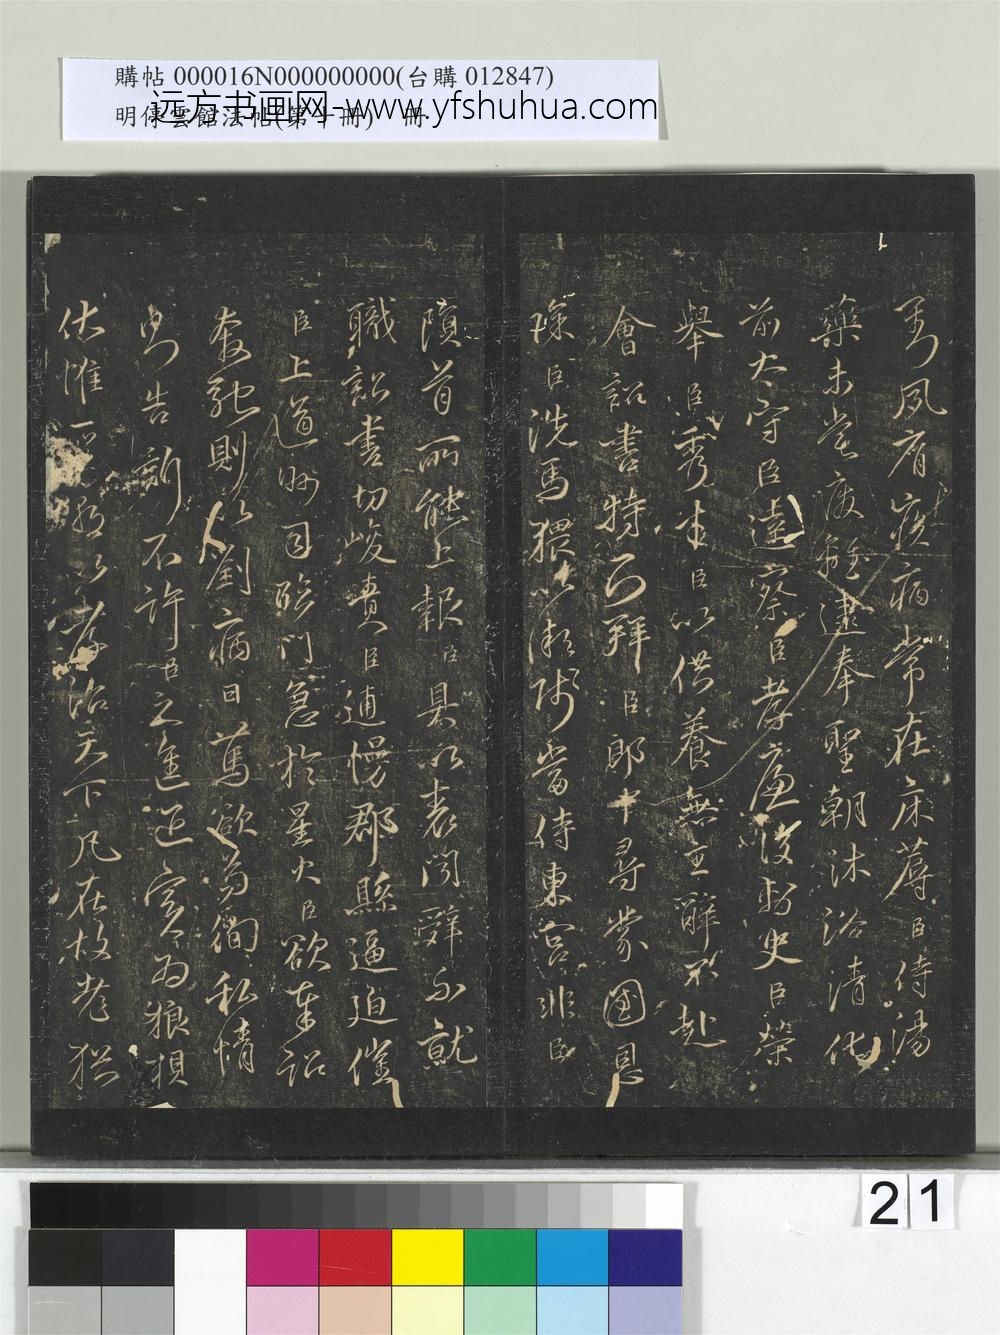 購帖 000016N000000000(台購 012847)
明停雲館法帖(第十冊) 冊
远方书画网-www.yfshuhua.com
劉夙有疾病常在床蓐臣侍湯
藥未嘗廢離逮奉聖朝沐浴清化
前太守臣逵察臣孝廉後刺史臣榮
舉臣秀才臣以供養無主辭不赴
會詔書特下拜臣郎中尋蒙國恩
除臣洗馬猥以微賤當侍東宮非臣
隕首所能上報臣具以表聞辭不就
職詔書切峻責臣逋慢郡縣逼迫催
臣上道州司臨門急於星火臣欲奉詔
奔馳則以劉病日篤欲苟徇私情
則告訴不許臣之進退實為狼狽
伏惟 朝以孝治天下凡在故老猶
21